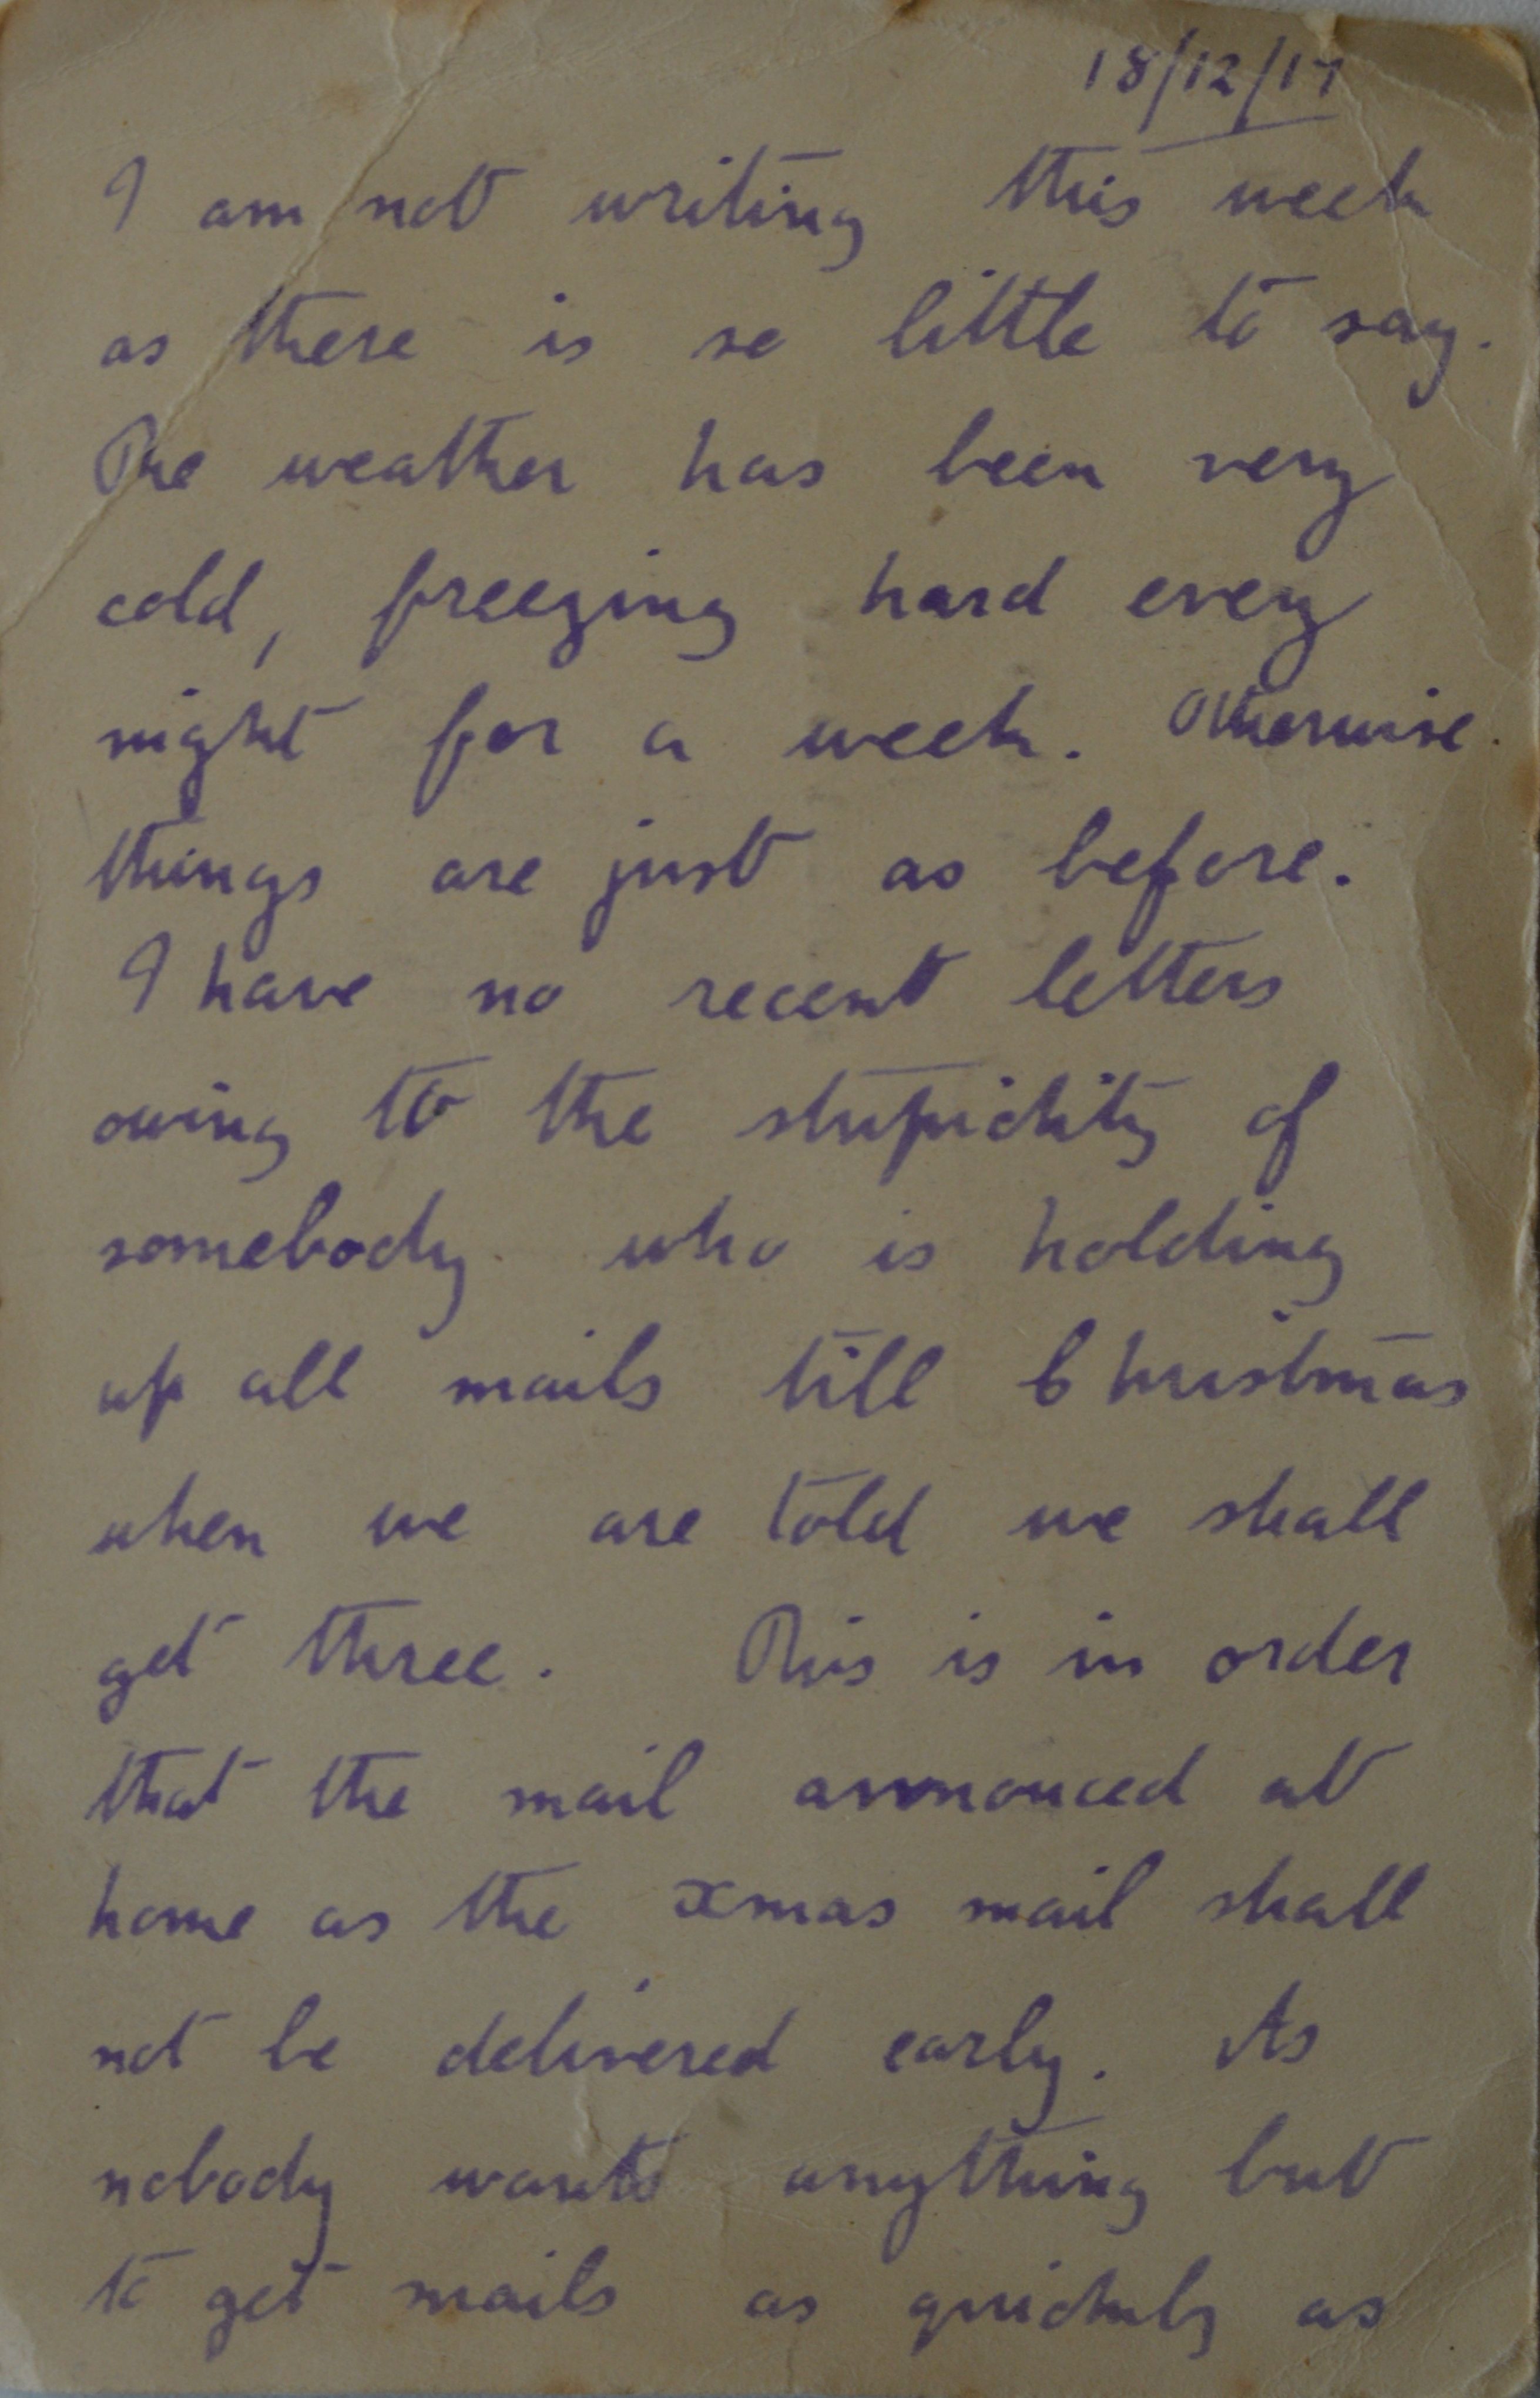 18/12/17
I am not writing this week
as there is so little to say.
The weather has been very
cold, freezing hard every
night for a week. Otherwise
things are just as before.
I have no recent letters
owing to the stupidity of
somebody who is holding
up all mails till Christmas
when we are told we shall
get three. This is in order
that the mail annonced at
home as the xmas mail shall
not be delivered early. As
nobody wants anything but
to get mails as quickly as